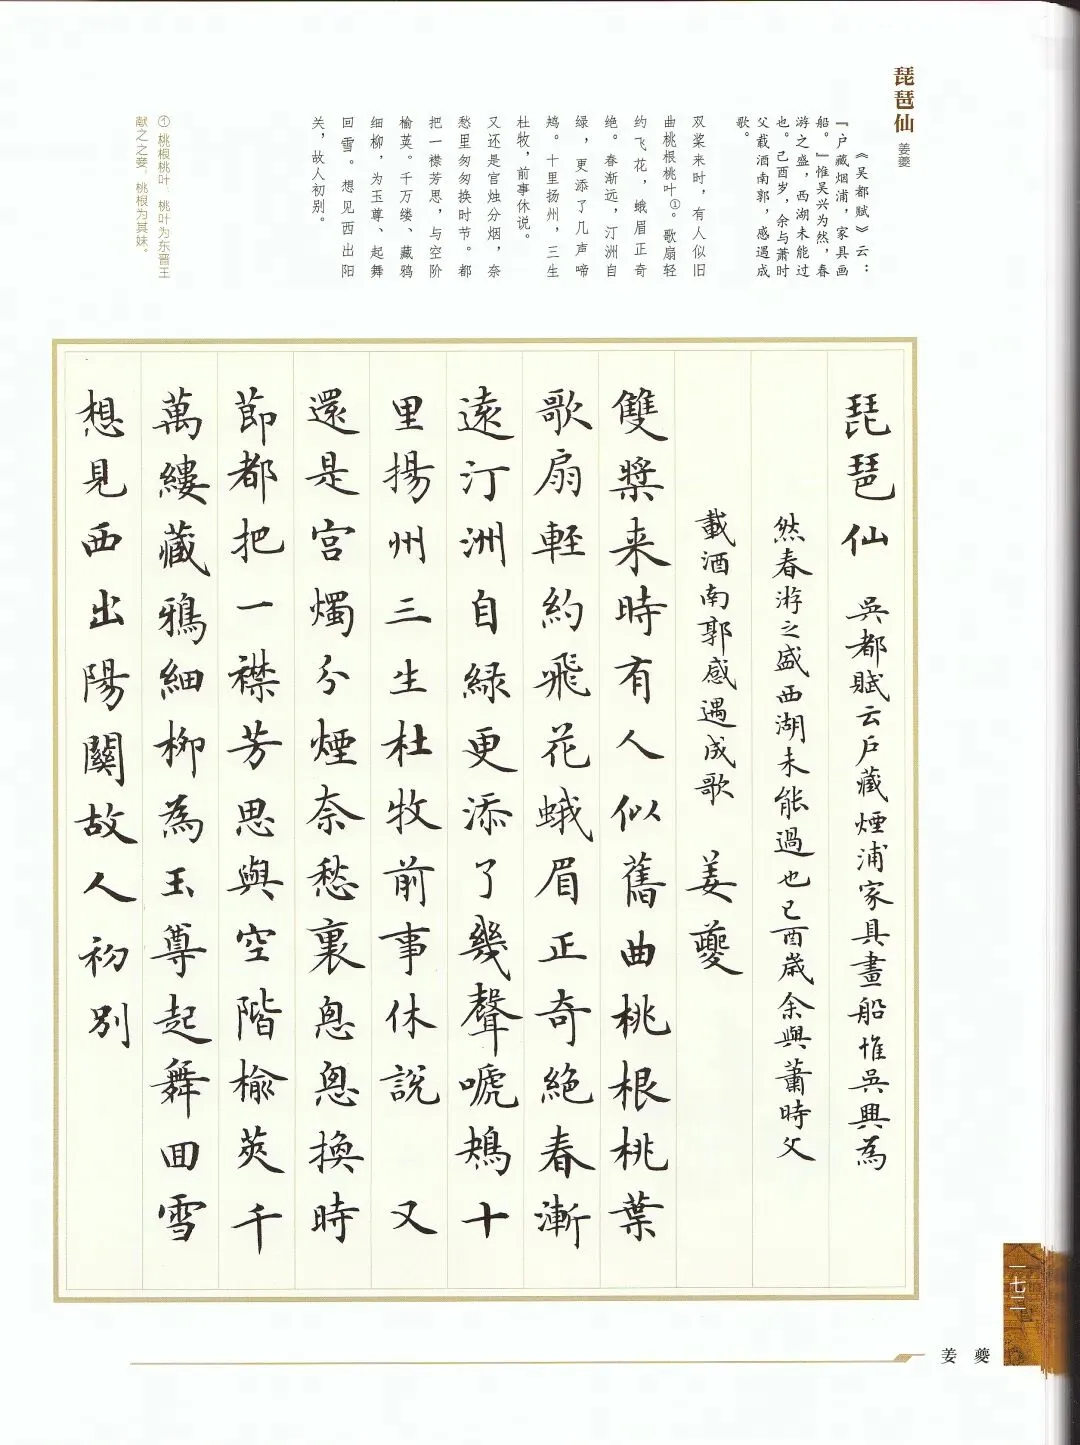 琵琶仙 姜夔
《吴都赋》云：
『户藏烟浦，家具画
船。』惟吴兴为然，春
游之盛，西湖未能过
也。己酉岁，余与萧时
父载酒南郭，感遇成
歌。
双桨来时，有人似旧
曲桃根桃叶①。歌扇轻
约飞花，蛾眉正奇
绝。春渐远，汀洲自
绿，更添了几声啼
鴂。十里扬州，三生
杜牧，前事休说。
又还是宫烛分烟，奈
愁里匆匆换时节。都
把一襟芳思，与空阶
榆荚。千万缕、藏鸦
细柳，为玉尊、起舞
回雪。想见西出阳
关，故人初别。
① 桃根桃叶，桃叶为东晋王
献之之妾，桃根为其妹。
琵琶仙 吳都賦云戶藏煙浦家具畫船惟吳興為
然春游之盛西湖未能過也己酉歲余與蕭時父
載酒南郭感遇成歌 姜夔
雙槳来時有人似舊曲桃根桃葉
歌扇輕約飛花蛾眉正奇絕春漸
遠汀洲自緑更添了幾聲嗁鴂十
里揚州三生杜牧前事休說 又
還是宮燭分煙奈愁裏悤悤換時
節都把一襟芳思與空階榆莢千
萬縷藏鴉細柳為玉尊起舞回雪
想見西出陽關故人初別
一七二
姜夔